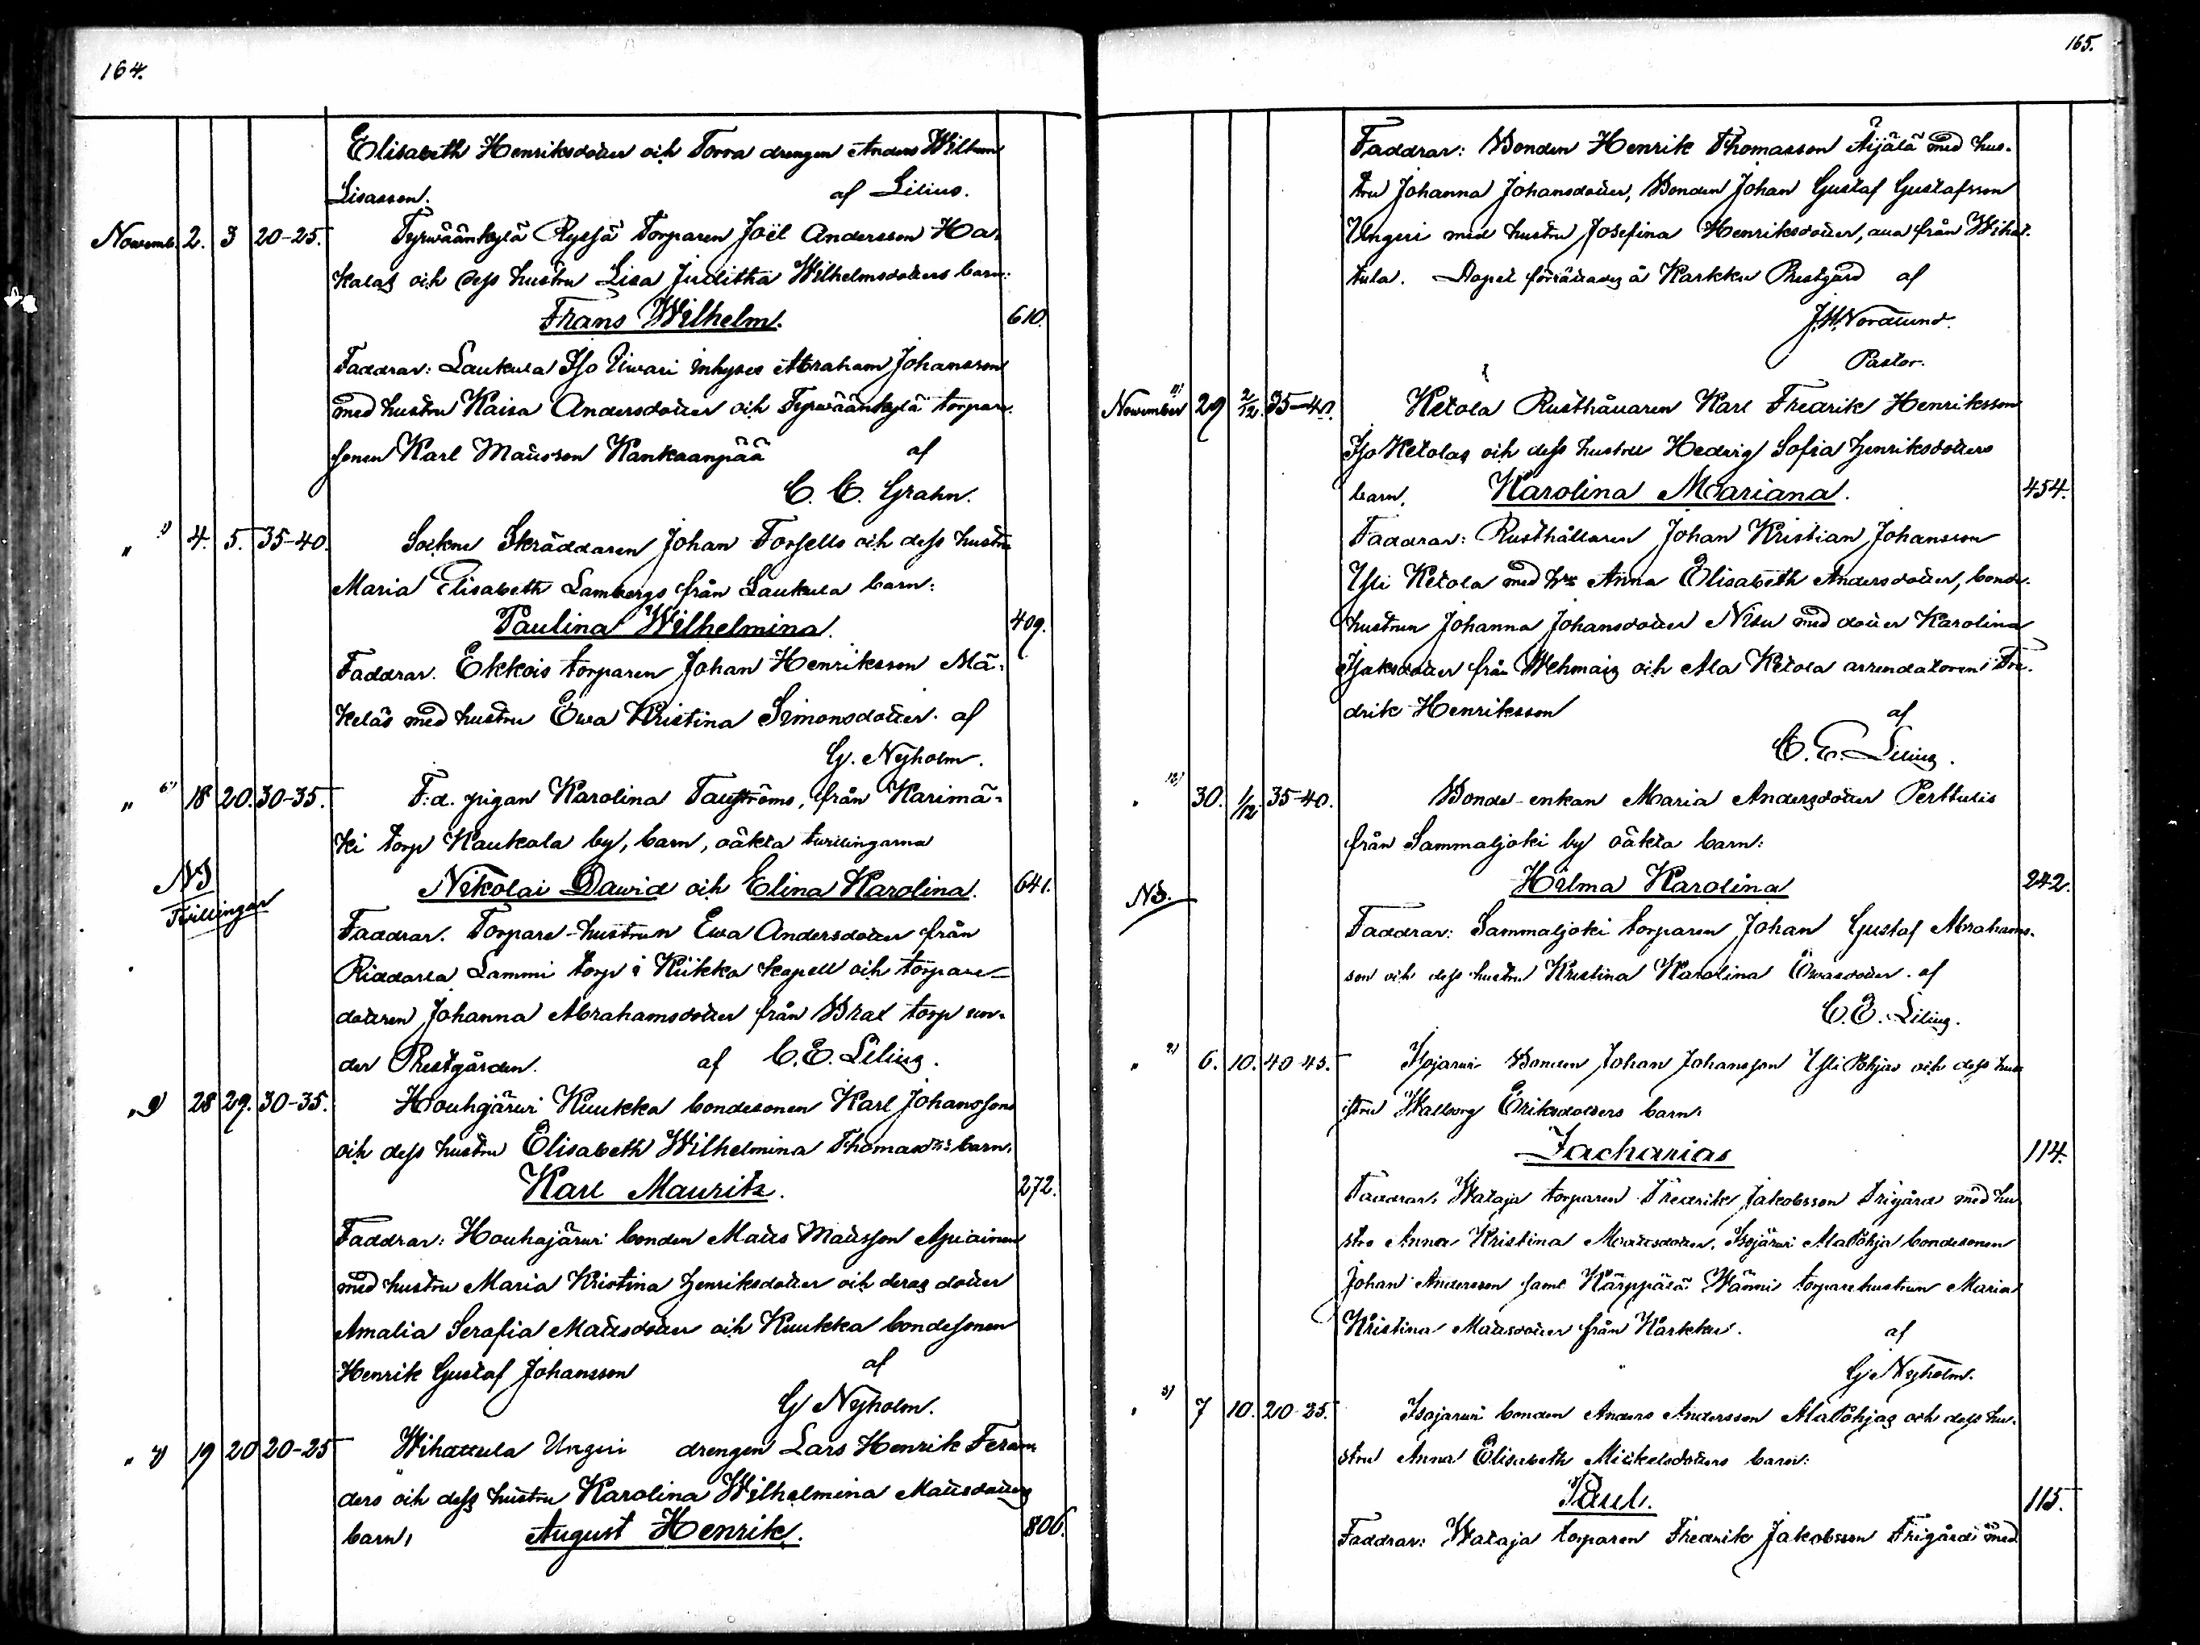 164.
Elisabeth Henriksdotter och Torra drengen Anders Wilhem
Lisasson. af Lilius.
Novemb. 2. 3 20-25. Tyrwäänkylä Ryssä Torparen Joël Andersson Ha-
kalas och dess hustru Lisa Juditha Wilhelmsdotters barn:
Frans Wilhelm. 610.
Faddrar: Laukula Iso Uwari inhyses Abraham Johansson
med hustru Kaisa Andersdotter och Tyrwäänkylä torpare-
sonen Karl Mattsson Kankaanpää af
C. E. Grahn.
" 4. 5. 35-40. Sockne Skräddaren Johan Forsells och dess hustru
Maria Elisabeth Lambergs från Laukula barn:
Paulina Wilhelmina. 409.
Faddrar. Ekkois torparen Johan Henriksson Mä-
keläs med hustru Ewa Kristina Simonsdotter. af
G. Nyholm.
" 6) 18 20. 30-35. F:d. pigan Karolina Tauströms, från Karimä-
ki torp Kaukola by, barn, oäkta twillingarna
NB
Twillingar
Nikolai Dawid och Elina Karolina. 641.
Faddrar. Torpare-hustrun Ewa Andersdotter från
Riddarla Lammi torp i Kiikka kapell och torpare-
dottren Johanna Abrahamsdotter från Brat torp un-
der Prestgården. af C. E. Lilius.
" 9) 28 29. 30-35. Houhajärwi Kuukka bondesonen Karl Johanssons
och dess hustru Elisabeth Wilhelmina Thomasdrs barn.
Karl Mauritz. 272.
Faddrar: Houhajärwi bonden Matts Mattsson Apiainen
med hustru Maria Kristina Henriksdotter och deras dotter
Amalia Serafia Mattsdotter och Kuukka bondesonen
Henrik Gustaf Johansson af
G Nyholm.
" 19 20 20-25 Wihattula Ungeri drengen Lars Henrik Feran-
ders och dess hustru Karolina Wilhelmina Mattsdotters
barn, August Henrik. 806.
165.
Faddrar: Bonden Henrik Thomasson Äijälä med hus-
tru Johanna Johansdotter, Bonden Johan Gustaf Gustafsson
Ungeri med hustru Josefina Henriksdotter, alla från Wihat-
tula. Dopet förrättades å Karkku Prestgård af
J. W. Nordlund.
Pastor.
November 11) 29 2/12. 35-40. Ketola Rusthållaren Karl Fredrik Henriksson
Iso Ketolas och dess hustru Hedvig Sofia Henriksdotters
barn, Karolina Mariana. 454.
Faddrar: Rusthållaren Johan Kristian Johansson
Yli Ketola med hru Anna Elisabeth Andersdotter, bonde-
hustrun Johanna Johansdotter Nisu med dotter Karolina
Isaksdotter från Wehmais och Ala Ketola arrendatoren Fre-
drik Henriksson af
C. E. Lilius.
" 12) 30. 1/12 35-40. Bonde-enkan Maria Andersdotter Perttulis
från Sammaljoki by oäkta barn:
NB.
Hilma Karolina 242.
Faddrar: Sammaljoki torparen Johan Gustaf Abrahams-
son och dess hustru Kristina Karolina Ewasdotter. af
C. E. Lilius.
" 2) 6. 10. 40-45. Isojärwi Bonden Johan Johansson Yli Pohjas och dess hus-
tru Walborg Eriksdotters barn.
Zacharias 114.
Faddrar. Wataja torparen Fredrik Jakobsson Frigård med hu-
stru Anna Kristina Mattsdotter. Isojärwi Ala Pohja bondesonen
Johan Andersson samt Kärppälä Wänni torparehustrun Maria
Kristina Mattsdotter från Karkku. af
G Nyholm.
" 3) 7 10. 20-25. Isojärwi bonden Anders Andersson Ala Pohjas och dess hu-
stru Anna Elisabeth Mickelsdotters barn:
Paul. 115.
Faddrar: Wataja torparen Fredrik Jakobsson Frigård med